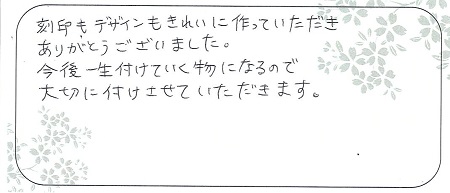 刻印もデザインもきれいに作っていただき
ありがとうございました。
今後一生付けていく物になるので
大切に付けさせていただきます。